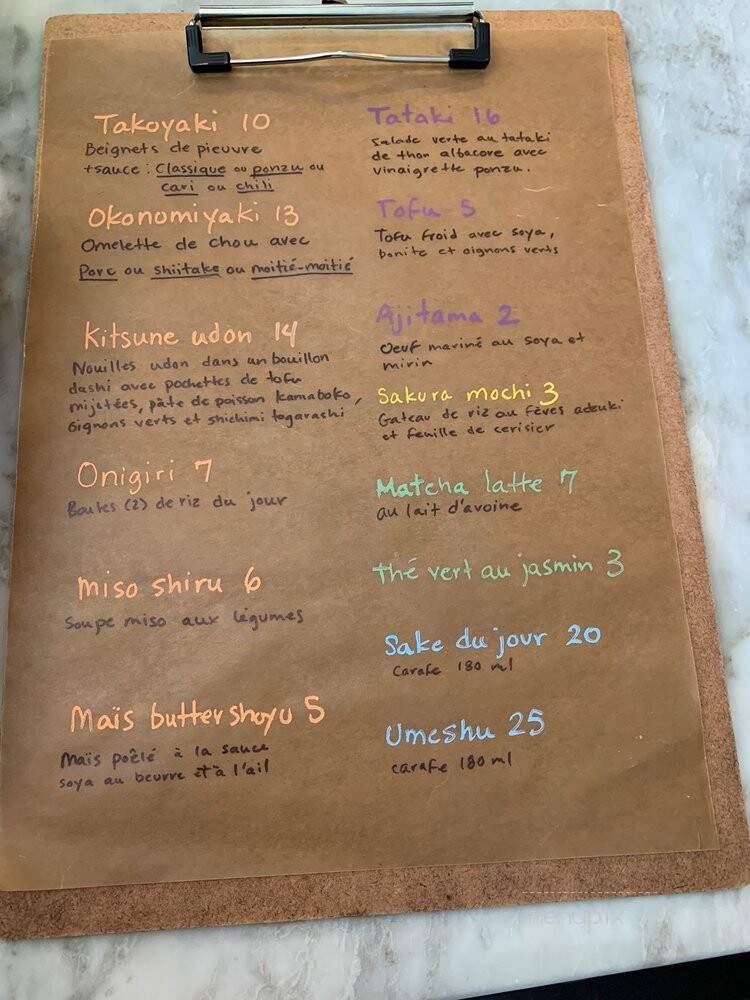 Takoyaki 10
Beignets de pieuvre
+sauce : Classique ou ponzu ou
cari ou chili
Okonomiyaki 13
Omelette de chou avec
Porc ou shiitake ou moitié-moitié
Kitsune udon 14
Nouilles udon dans un bouillon
dashi avec pochettes de tofu
mijotées, pâte de poisson kamaboko,
oignons verts et shichimi togarashi
Onigiri 7
Boules (2) de riz du jour
miso shiru 6
Soupe miso aux légumes
Maïs butter shoyu 5
Maïs poêlé à la sauce
soya au beurre et à l'ail
Tataki 16
Salade verte au tataki
de thon albacore avec
vinaigrette ponzu.
Tofu 5
Tofu froid avec soya,
bonite et oignons verts
Ajitama 2
Oeuf mariné au soya et
mirin
Sakura mochi 3
Gateau de riz au fèves adzuki
et feuille de cerisier
Matcha latte 7
au lait d'avoine
Thé vert au jasmin 3
Sake du jour 20
Carafe 180 ml
Umeshu 25
carafe 180 ml